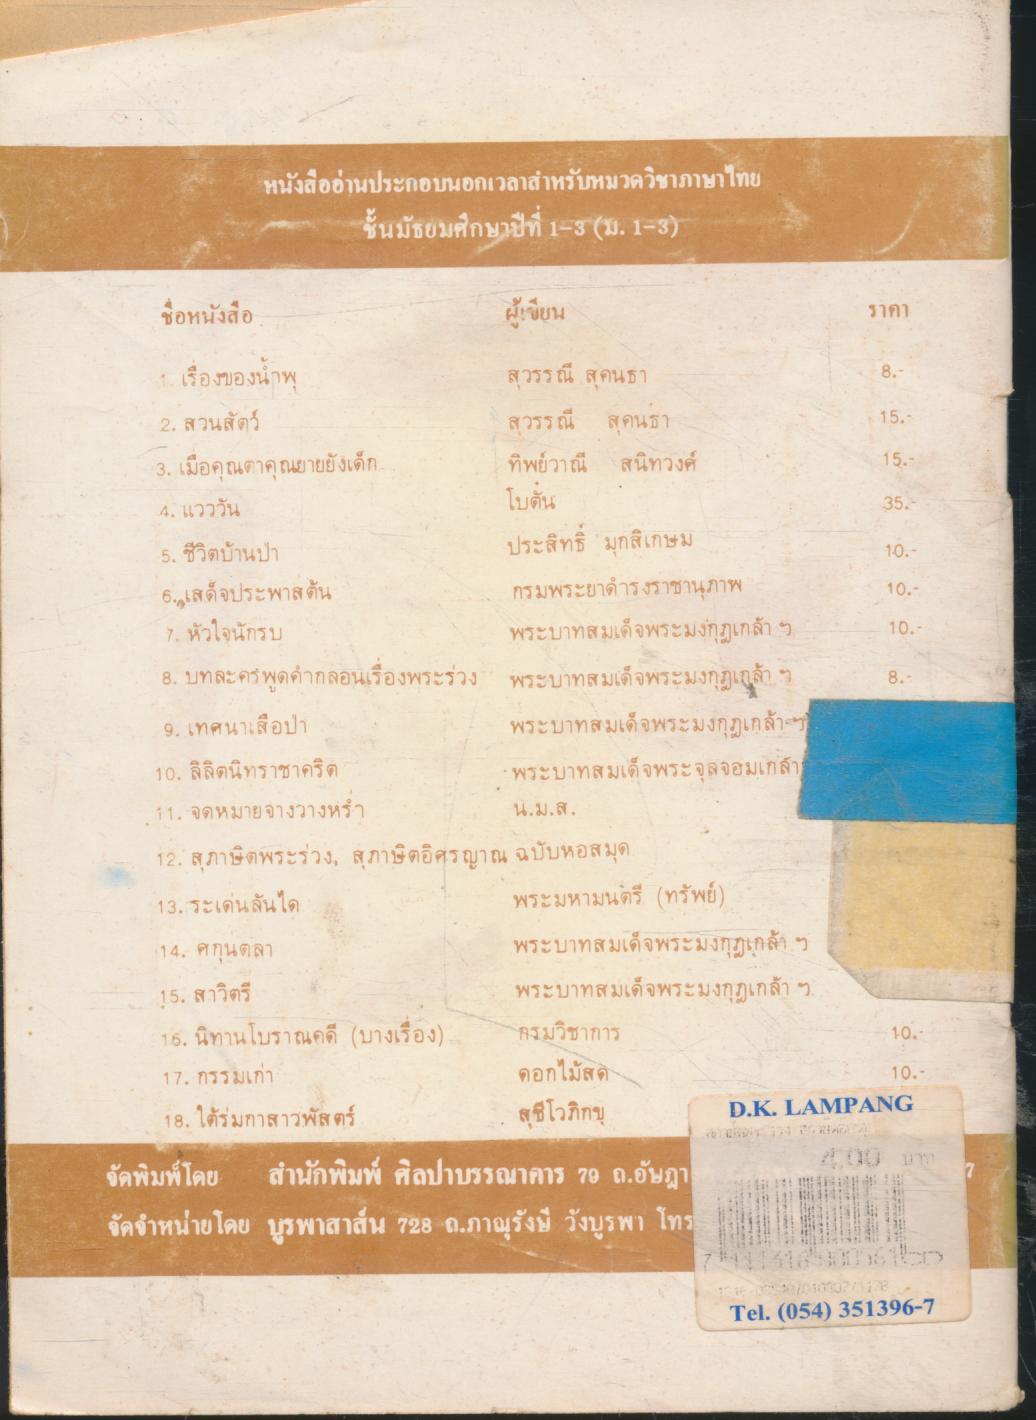 หนังสืออ่านประกอบนอกเวลาสำหรับหมวดวิชาภาษาไทย
ชั้นมัธยมศึกษาปีที่ 1-3 (ม. 1-3)
ชื่อหนังสือ ผู้เขียน ราคา
1. เรื่องของน้ำพุ สุวรรณี สุคนธา 8.-
2. สวนสัตว์ สุวรรณี สุคนธา 15.-
3. เมื่อคุณตาคุณยายยังเด็ก ทิพย์วาณี สนิทวงศ์ 15.-
4. แวววัน โบตั๋น 35.-
5. ชีวิตบ้านป่า ประสิทธิ์ มุกสิเกษม 10.-
6. เสด็จประพาสต้น กรมพระยาดำรงราชานุภาพ 10.-
7. หัวใจนักรบ พระบาทสมเด็จพระมงกุฎเกล้า ฯ 10.-
8. บทละครพูดคำกลอนเรื่องพระร่วง พระบาทสมเด็จพระมงกุฎเกล้า ฯ 8.-
9. เทศนาเสือป่า พระบาทสมเด็จพระมงกุฎเกล้า ฯ
10. ลิลิตนิทราชาคริต พระบาทสมเด็จพระจุลจอมเกล้า
11. จดหมายจางวางหร่ำ น.ม.ส.
12. สุภาษิตพระร่วง, สุภาษิตอิศรญาณ ฉบับหอสมุด
13. ระเด่นลันได พระมหามนตรี (ทรัพย์)
14. ศกุนตลา พระบาทสมเด็จพระมงกุฎเกล้า ฯ
15. สาวิตรี พระบาทสมเด็จพระมงกุฎเกล้า ฯ
16. นิทานโบราณคดี (บางเรื่อง) กรมวิชาการ 10.-
17. กรรมเก่า ดอกไม้สด 10.-
18. ใต้ร่มกาสาวพัสตร์ สุชีโวภิกขุ
จัดพิมพ์โดย สำนักพิมพ์ ศิลปาบรรณาคาร 79 ถ.อัษฎา 7
จัดจำหน่ายโดย บูรพาสาส์น 728 ถ.ภาณุรังษี วังบูรพา โทร
D.K. LAMPANG
บาท
Tel. (054) 351396-7